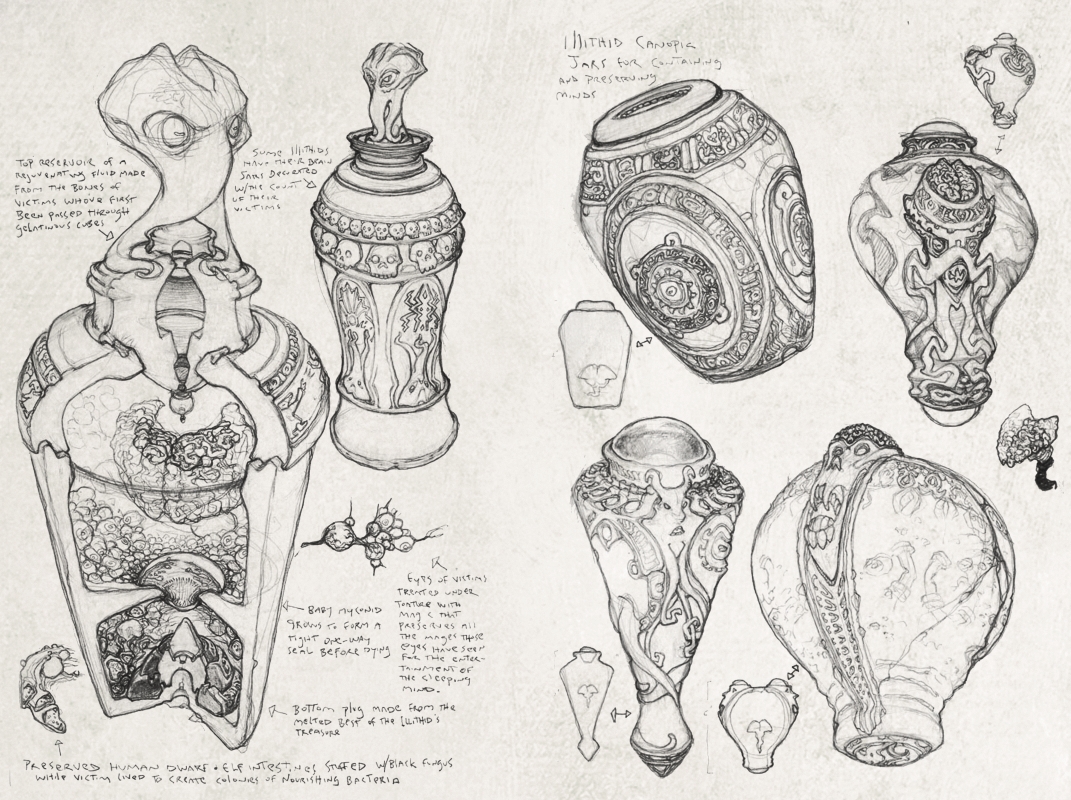 Top reservoir of a
rejuvenating fluid made
from the bones of
victims who've first
been passed through
gelatinous cubes
Some Illithids
have their brain
jars decorated
w/the count
of their
victims
Eyes of victims
treated under
torture with
magic that
preserves all
the images those
eyes have seen
for the enter-
tainment of
the sleeping
mind.
Baby myconid
grows to form a
tight one-way
seal before dying
Bottom plug made from the
melted best of the Illithid's
treasure
Preserved human dwarf + elf intestines stuffed w/black fungus
while victim lived to create colonies of nourishing bacteria
Illithid Canopic
Jars for containing
and preserving
minds